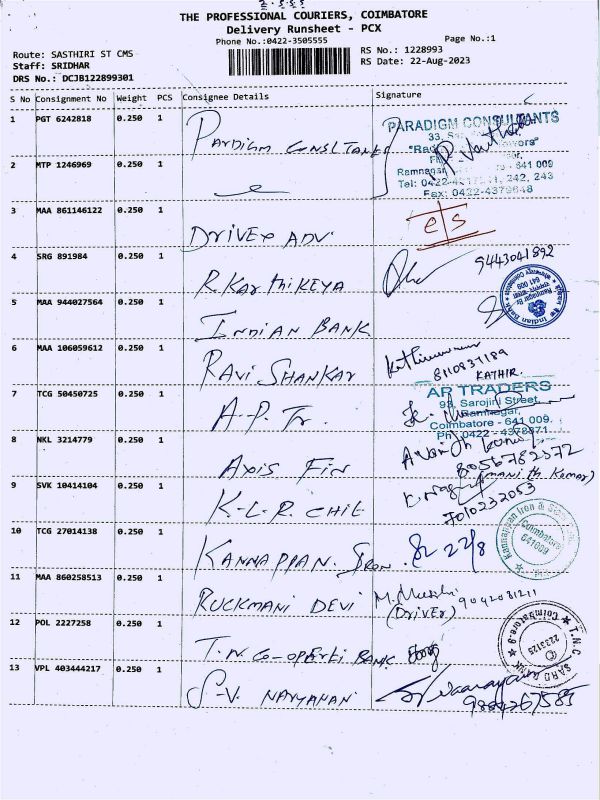 THE PROFESSIONAL COURIERS, COIMBATORE
Delivery Runsheet - PCX
Phone No.:0422-3505555
Page No.:1
Route: SASTHIRI ST CMS
RS No.: 1228993
Staff: SRIDHAR
RS Date: 22-Aug-2023
DRS No.: DCJB122899301
S No Consignment No Weight PCS Consignee Details Signature
1 PGT 6242818 0.250 1 PARDIGM CONSLTANES
PARADIGM CONSULTANTS
33,
Ramnagar, 641 009
Tel: 0422- 242, 243
Fax: 0422-4379648
2 MTP 1246969 0.250 1
3 MAA 861146122 0.250 1 DRIVEX ADV
4 SRG 891984 0.250 1 R. KARTHIKEYA 9443041892
5 MAA 944027564 0.250 1 INDIAN BANK
6 MAA 106059612 0.250 1 RAVI SHANKAR
8110837189
KATHIR.
7 TCG 50450725 0.250 1 A.P. Tr.
AR TRADERS
93, Sarojini Street,
Ramnagar,
Coimbatore - 641 009.
Ph: 0422 - 4378871
8 NKL 3214779 0.250 1 AXIS FIN
8056782372
9 SVK 10414104 0.250 1 K.L.R. CHIT
7010232053
10 TCG 27014138 0.250 1 KANNAPPAN. IRON. 22/8
Kannappan Iron & Steel
Coimbatore
641009
11 MAA 860258513 0.250 1 RUCKMANI DEVI 9042031211
(DRIVER)
12 POL 2227258 0.250 1 T.N. CO-OPARTI BANK
T.N.C.
13 VPL 403444217 0.250 1 S.V. NARYANAN